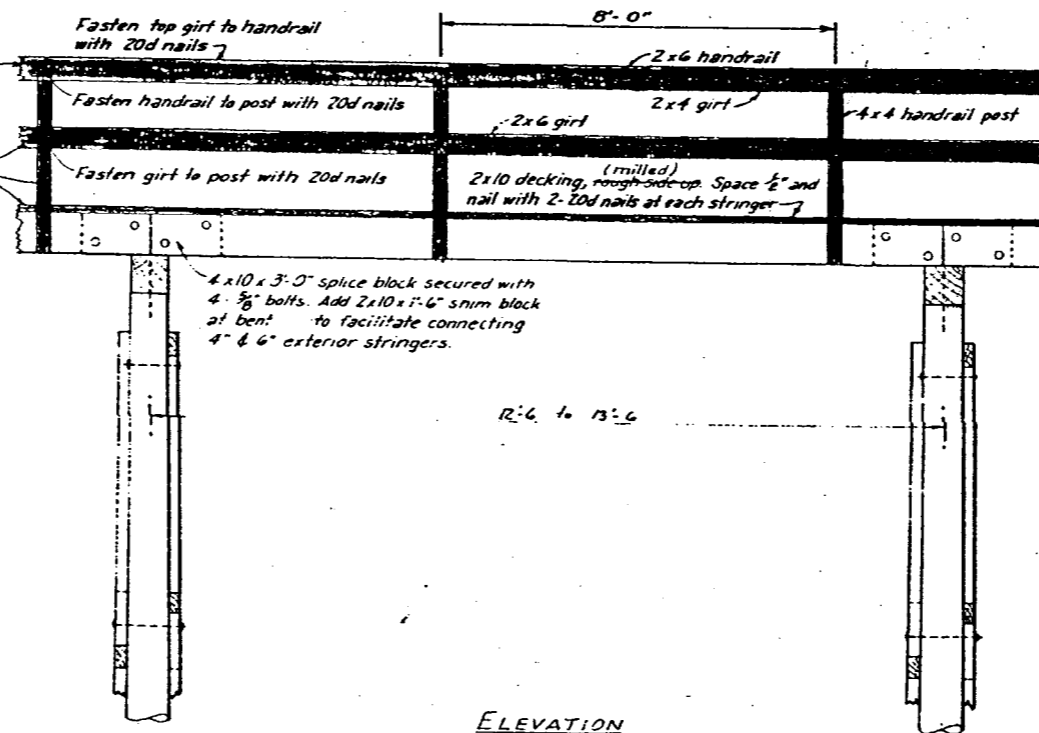 Fasten top girt to handrail
with 20d nails
8'-0"
2x6 handrail
Fasten handrail to post with 20d nails
2x4 girt
4x4 handrail post
2x6 girt
(milled)
Fasten girt to post with 20d nails
2x10 decking, rough side up. Space ½" and
nail with 2-20d nails at each stringer
4x10x3'-0" splice block secured with
4-⅝" bolts. Add 2x10x1'-6" shim block
at bent to facilitate connecting
4" & 6" exterior stringers.
12'-6 to 13'-6
ELEVATION